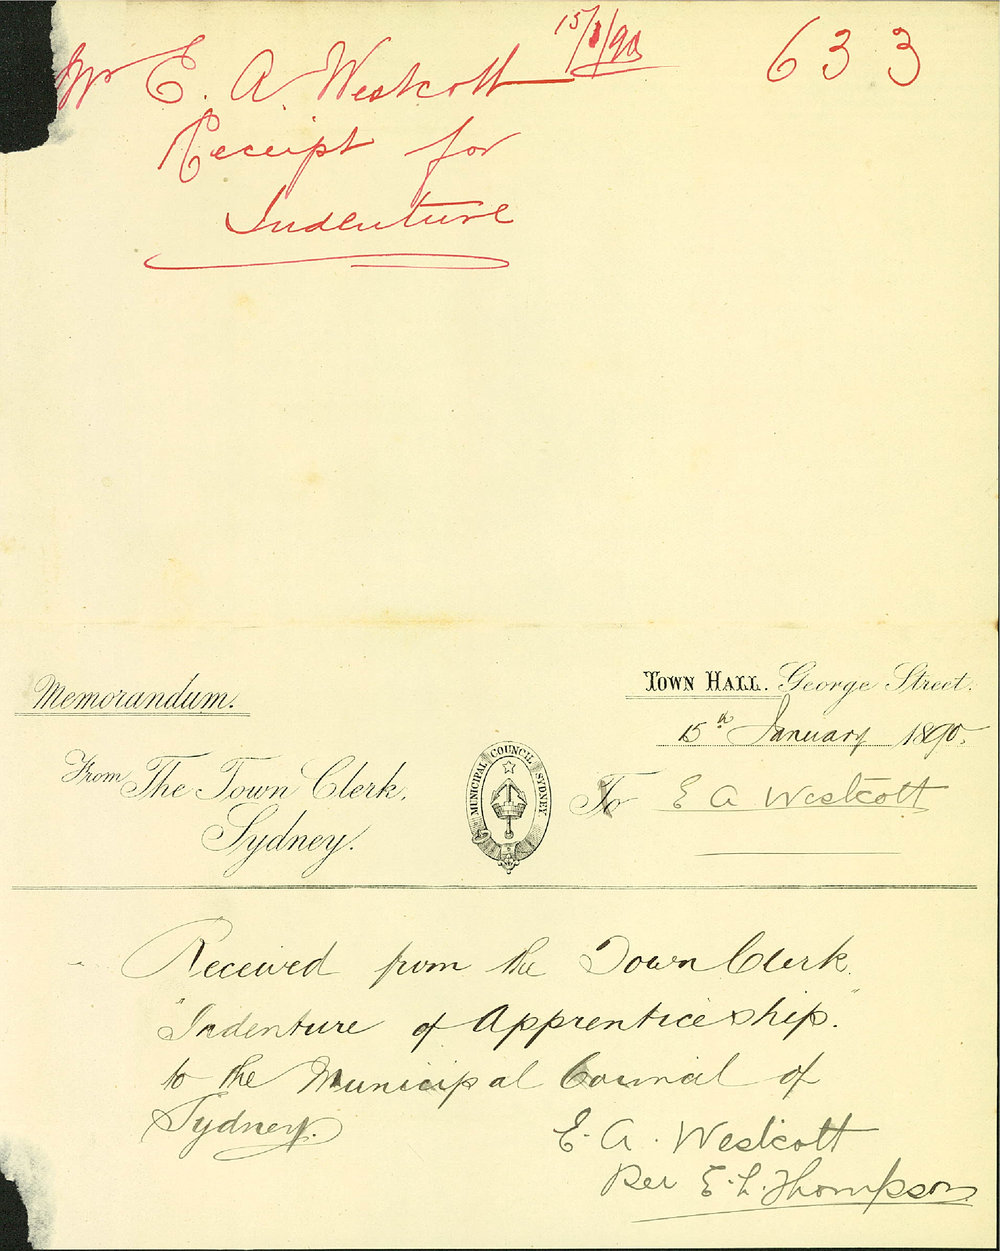 Mr E. A. Westcott 15/1/90
633
Receipt for
Indenture
Memorandum.
Town Hall. George Street.
15th January 1890.
From The Town Clerk,
Sydney.
MUNICIPAL COUNCIL SYDNEY
To E A Westcott
Received from the Town Clerk.
"Indenture of Apprenticeship."
to the Municipal Council of
Sydney.
E. A. Westcott
Per E. L. Thompson